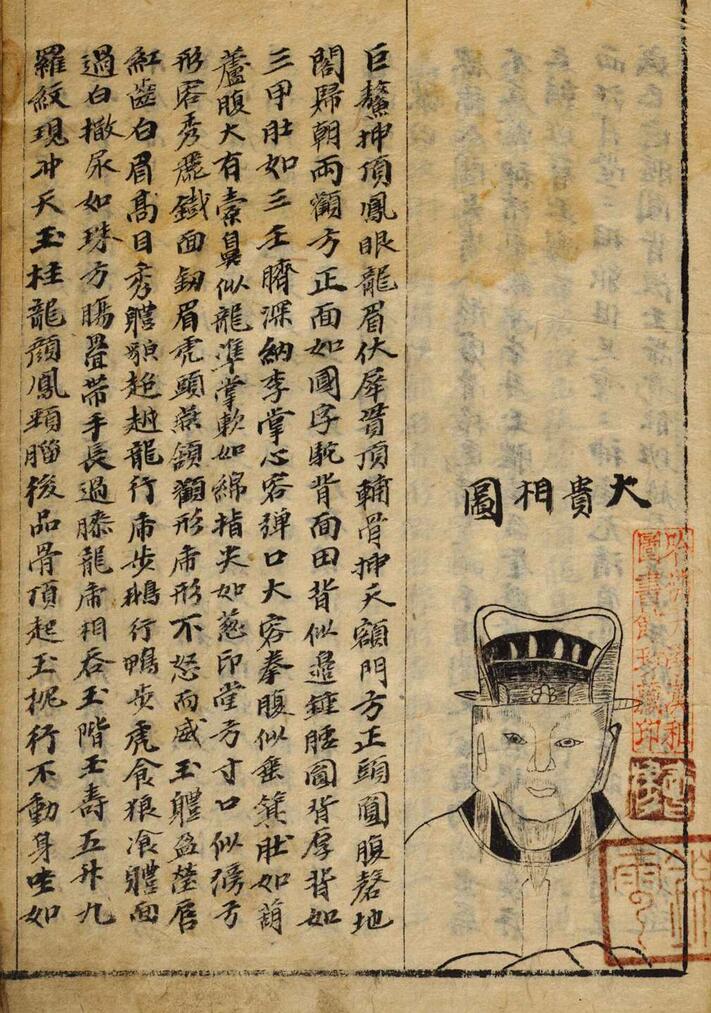 大貴相圖
巨鰲抻頂鳳眼龍眉伏犀貫頂輔骨抻天額門方正頭圓腹磬地
閣歸朝兩顴方正面如國字駝背面田背似邉鍾腰圓背厚背如
三甲肚如三壬臍深納李掌心容弹口大容拳腹似垂箕肚如葫
蘆腹大有囊鼻似龍準掌軟如綿指尖如葱印堂方寸口似磅方
形容秀麗鐵面劒眉虎頭燕頷獅形虎形不怒而威玉體盈瑩唇
紅齒白眉髙目秀體貌超越龍行虎步鵝行鴨步虎食狼飡體面
過白撒尿如珠方腸疊帶手長過膝龍虎相吞玉階玉壽五升九
羅紋現冲天玉柱龍顔鳳頸腦後品骨頂起玉枕行不動身坐如
圖書館珍藏印